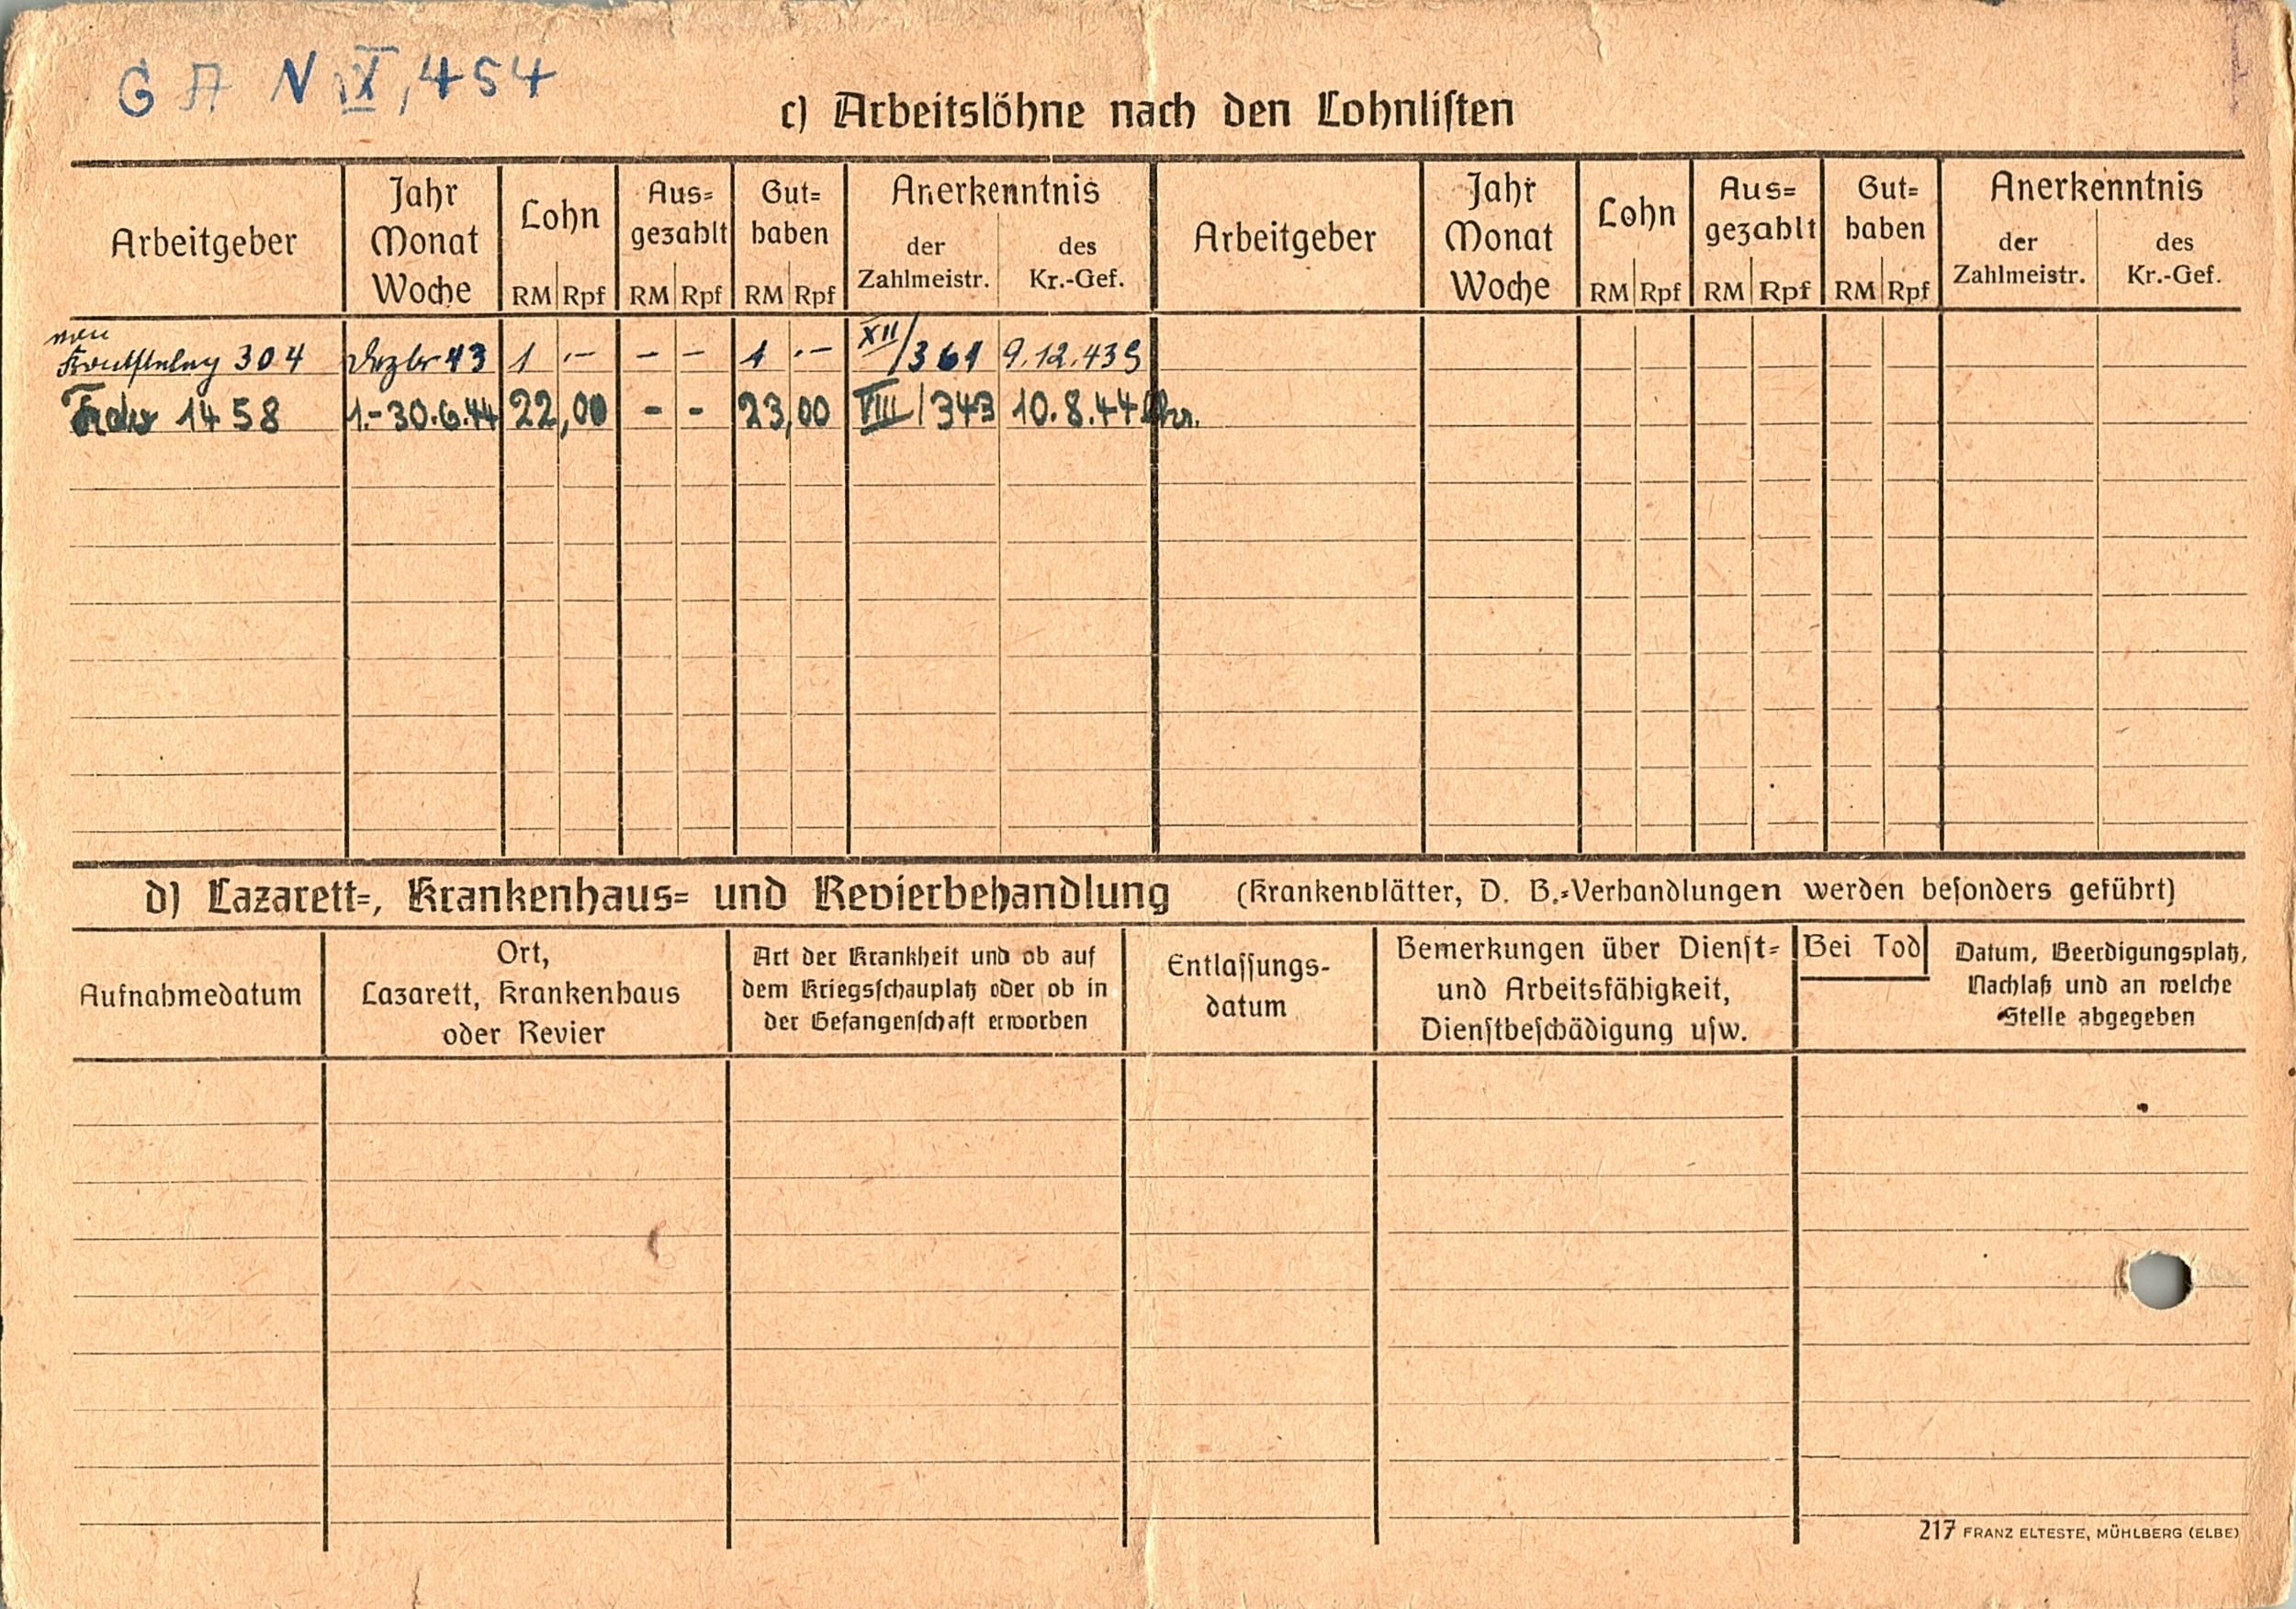 G A N IX, 454
c) Arbeitslöhne nach den Lohnlisten
Arbeitgeber Jahr Monat Woche Lohn RM Rpf Aus= gezahlt RM Rpf Gut= haben RM Rpf Anerkenntnis der Zahlmeistr. des Kr.-Gef. Arbeitgeber Jahr Monat Woche Lohn RM Rpf Aus= gezahlt RM Rpf Gut= haben RM Rpf Anerkenntnis der Zahlmeistr. des Kr.-Gef.
304 Dezbr 43 1 ,- - - 1 ,- XII/361 9.12.43
1458 1.-30.6.44 22,00 - - 23,00 VIII/343 10.8.44
d) Lazarett=, Krankenhaus= und Revierbehandlung (Krankenblätter, D. B.=Verhandlungen werden besonders geführt)
Aufnahmedatum
Ort,
Lazarett, Krankenhaus
oder Revier
Art der Krankheit und ob auf
dem Kriegsschauplatz oder ob in
der Gefangenschaft erworben
Entlassungs-
datum
Bemerkungen über Dienst=
und Arbeitsfähigkeit,
Dienstbeschädigung usw.
Bei Tod
Datum, Beerdigungsplatz,
Nachlaß und an welche
Stelle abgegeben
217 FRANZ ELTESTE, MÜHLBERG (ELBE)